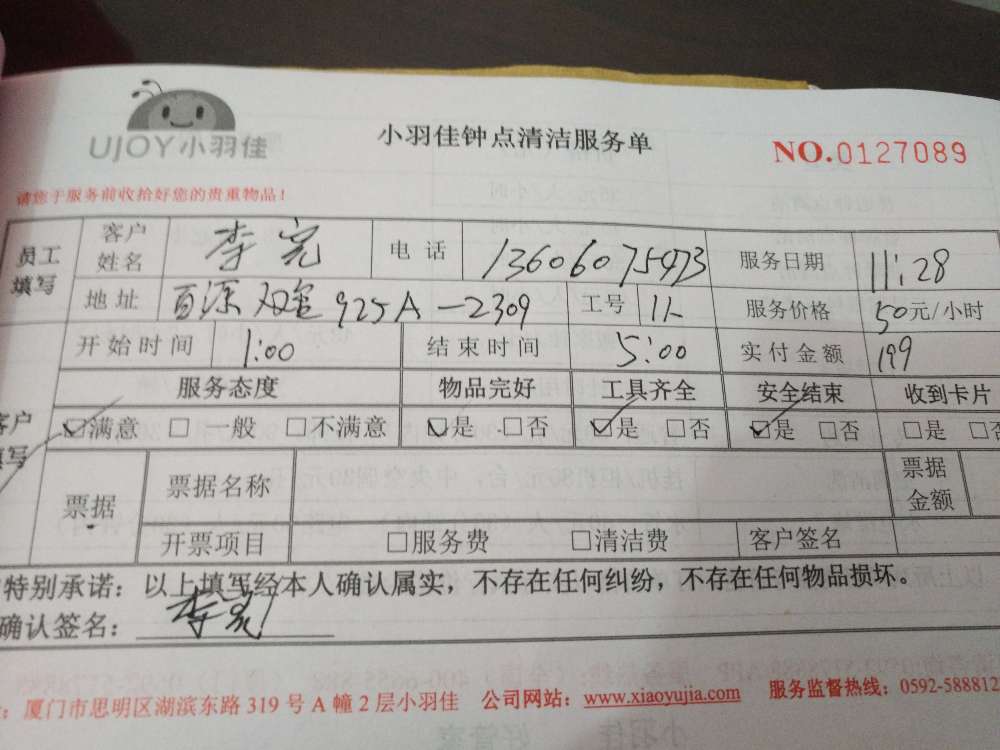 UJOY小羽佳
小羽佳钟点清洁服务单
NO.0127089
请您于服务前收拾好您的贵重物品!
员工填写 客户姓名 李完 电话 13606075473 服务日期 11:28
地址 百源双玺 925A-2309 工号 服务价格 50元/小时
开始时间 1:00 结束时间 5:00 实付金额 199
服务态度 物品完好 工具齐全 安全结束 收到卡片
☑满意 □一般 □不满意 ☑是 □否 ☑是 □否 ☑是 □否 □是
票据 票据名称 票据金额
开票项目 □服务费 □清洁费 客户签名
特别承诺:以上填写经本人确认属实,不存在任何纠纷,不存在任何物品损坏。
确认签名: 李完
厦门市思明区湖滨东路319号A幢2层小羽佳 公司网站:www.xiaoyujia.com 服务监督热线:0592-588812